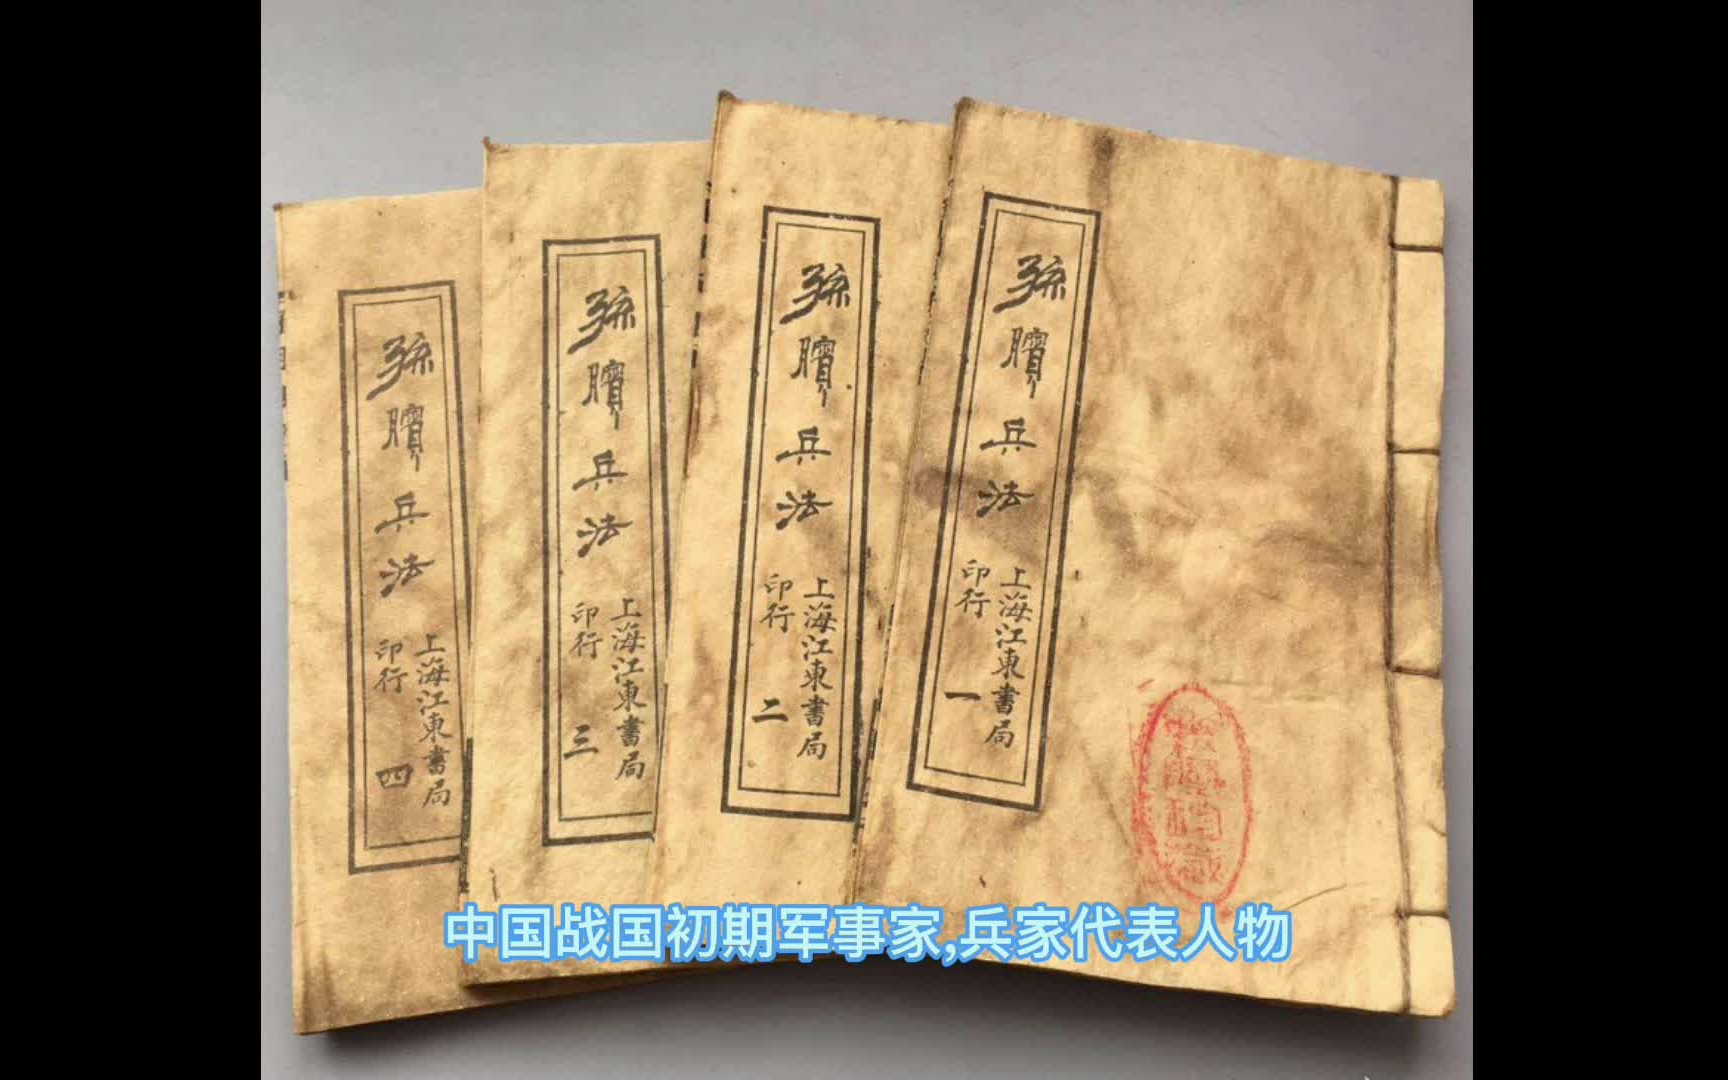 孫臏兵法
上海江東書局
印行
一
孫臏兵法
上海江東書局
印行
二
孫臏兵法
上海江東書局
印行
三
孫臏兵法
上海江東書局
印行
四
中国战国初期军事家,兵家代表人物